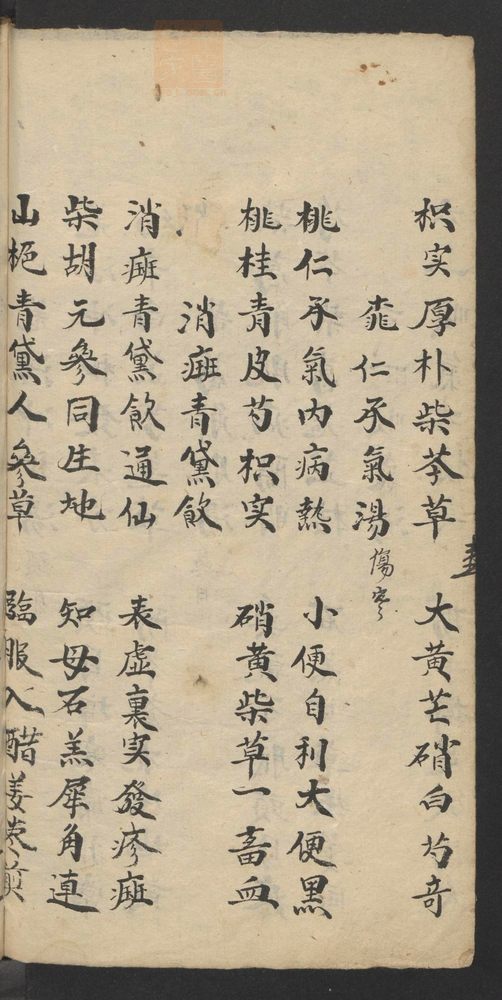 枳实厚朴柴芩草 大黄芒硝白芍奇
桃仁承氣湯 傷寒
桃仁承氣内病熱 小便自利大便黑
桃桂青皮芍枳实 硝黄柴草一畜血
消癍青黛飲
消癍青黛飲通仙 表虚裏实發疹癍
柴胡元參同生地 知母石羔犀角連
山栀青黛人參草 臨服入醋姜枣煎